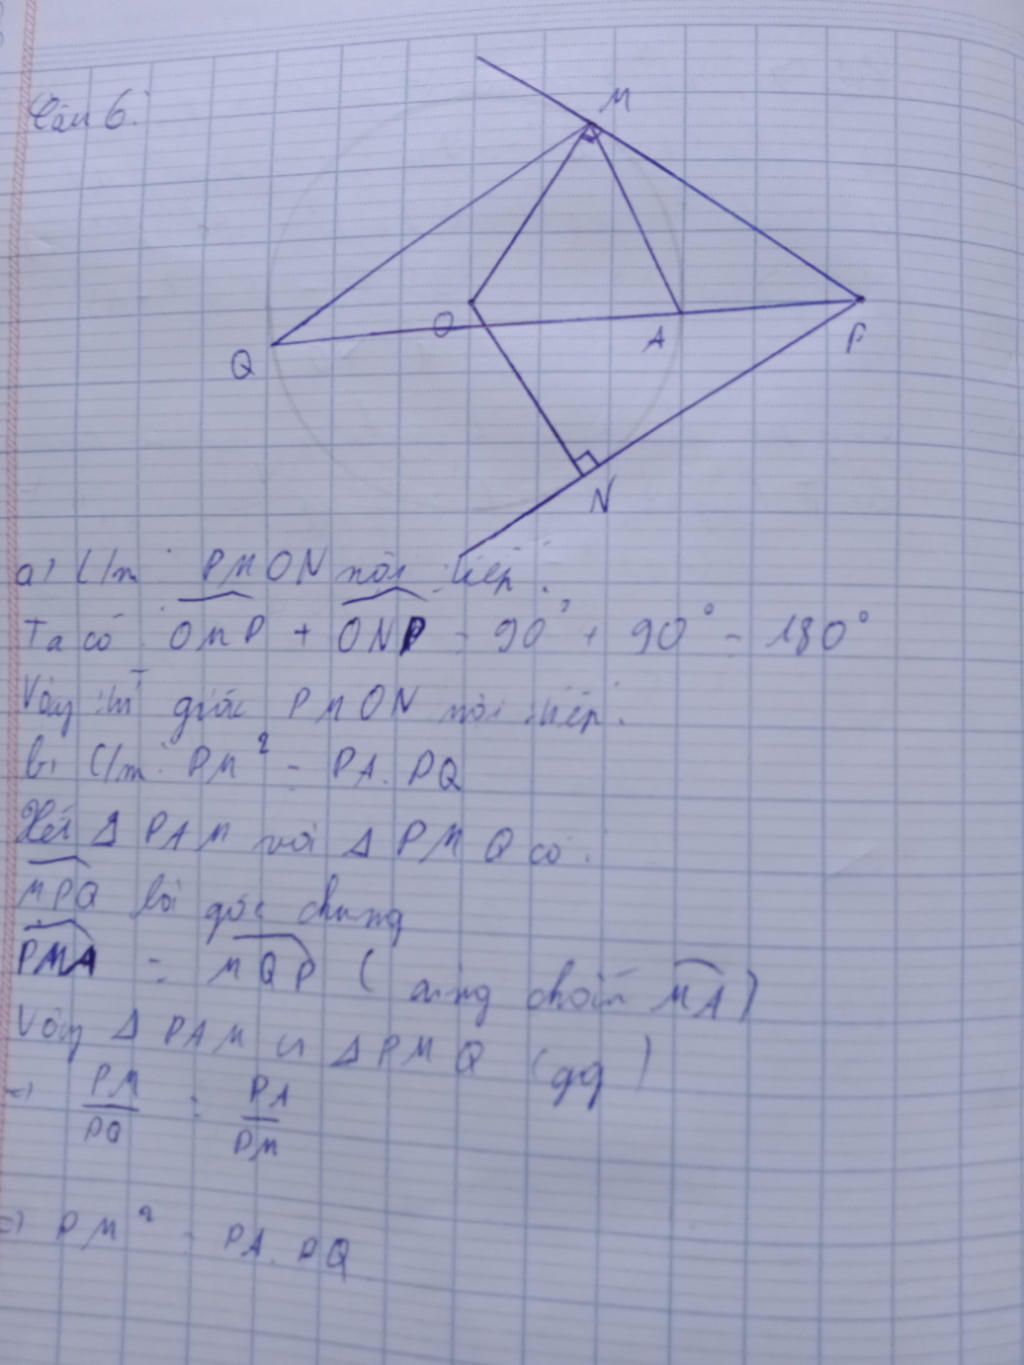 Câu 6:
M
O
Q
A
P
N
a) C/m: PMON nội tiếp.
Ta có: OMP + ONP = 90° + 90° = 180°
Vậy tứ giác PMON nội tiếp.
b) C/m: PM² = PA.PQ
Xét Δ PAM và Δ PMQ có:
MPQ là góc chung
PMA = MQP (cùng chắn MA)
Vậy Δ PAM ∽ Δ PMQ (gg)
=> PM/PQ = PA/PM
=> PM² = PA.PQ